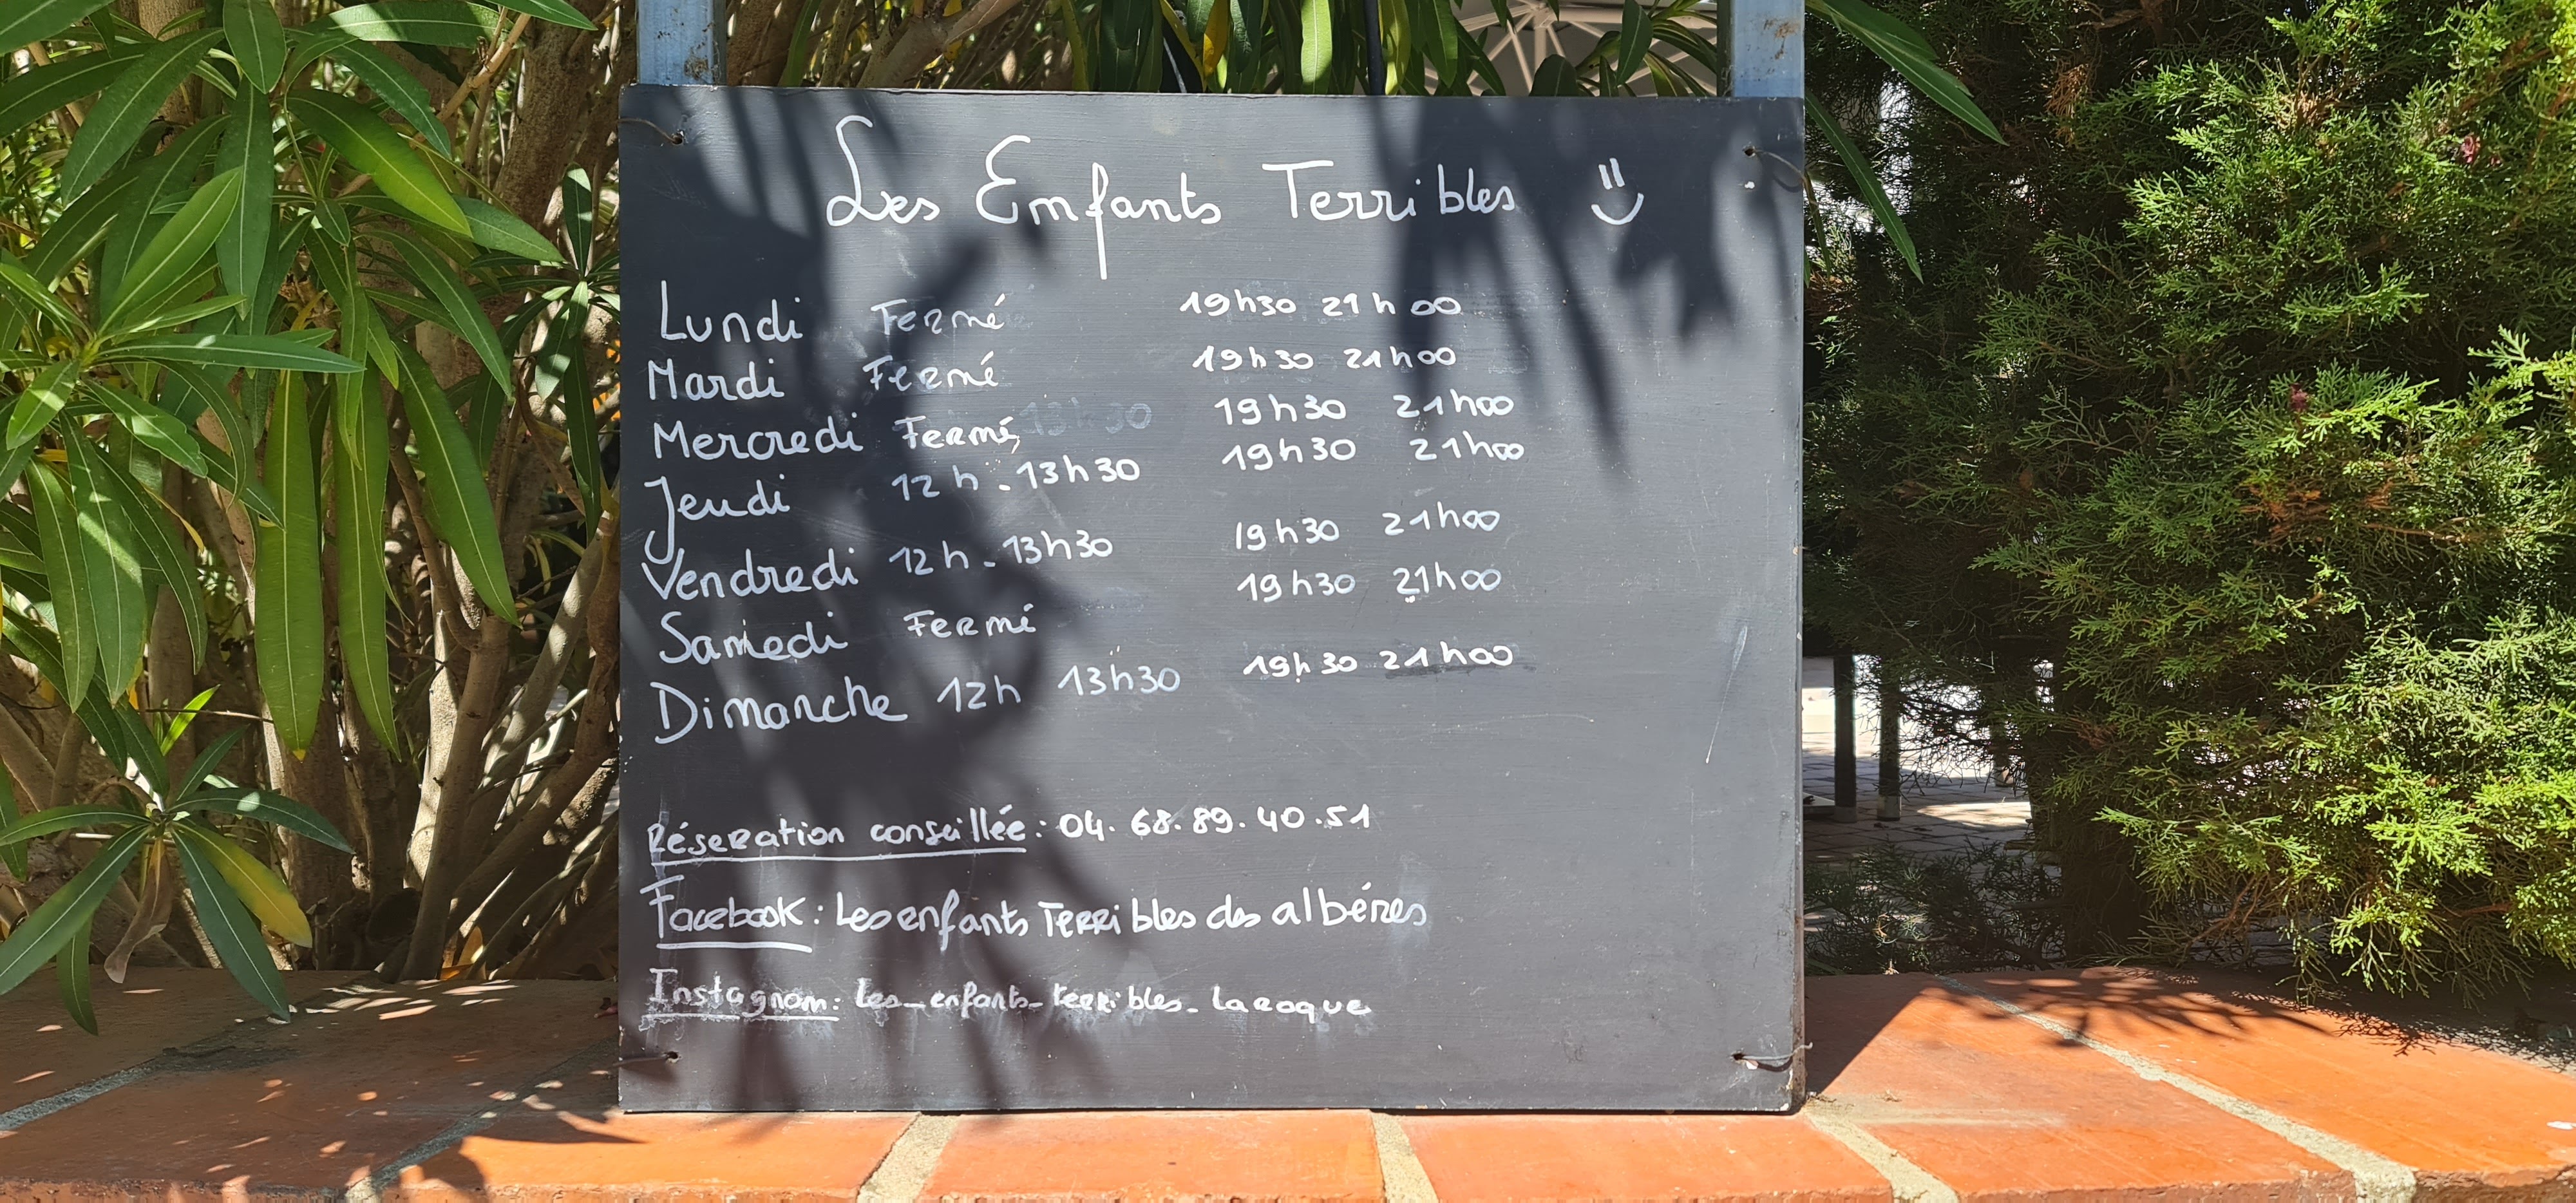 Les Enfants Terribles =)
Lundi Fermé 19h30 21h00
Mardi Fermé 19h30 21h00
Mercredi Fermé 13h30 19h30 21h00
Jeudi 12h - 13h30 19h30 21h00
Vendredi 12h - 13h30 19h30 21h00
Samedi Fermé 19h30 21h00
Dimanche 12h 13h30 19h30 21h00
Réseration conseillée : 04.68.89.40.51
Facebook : Les enfants Terribles des albéres
Instagram : Les_enfants_terribles_laroque